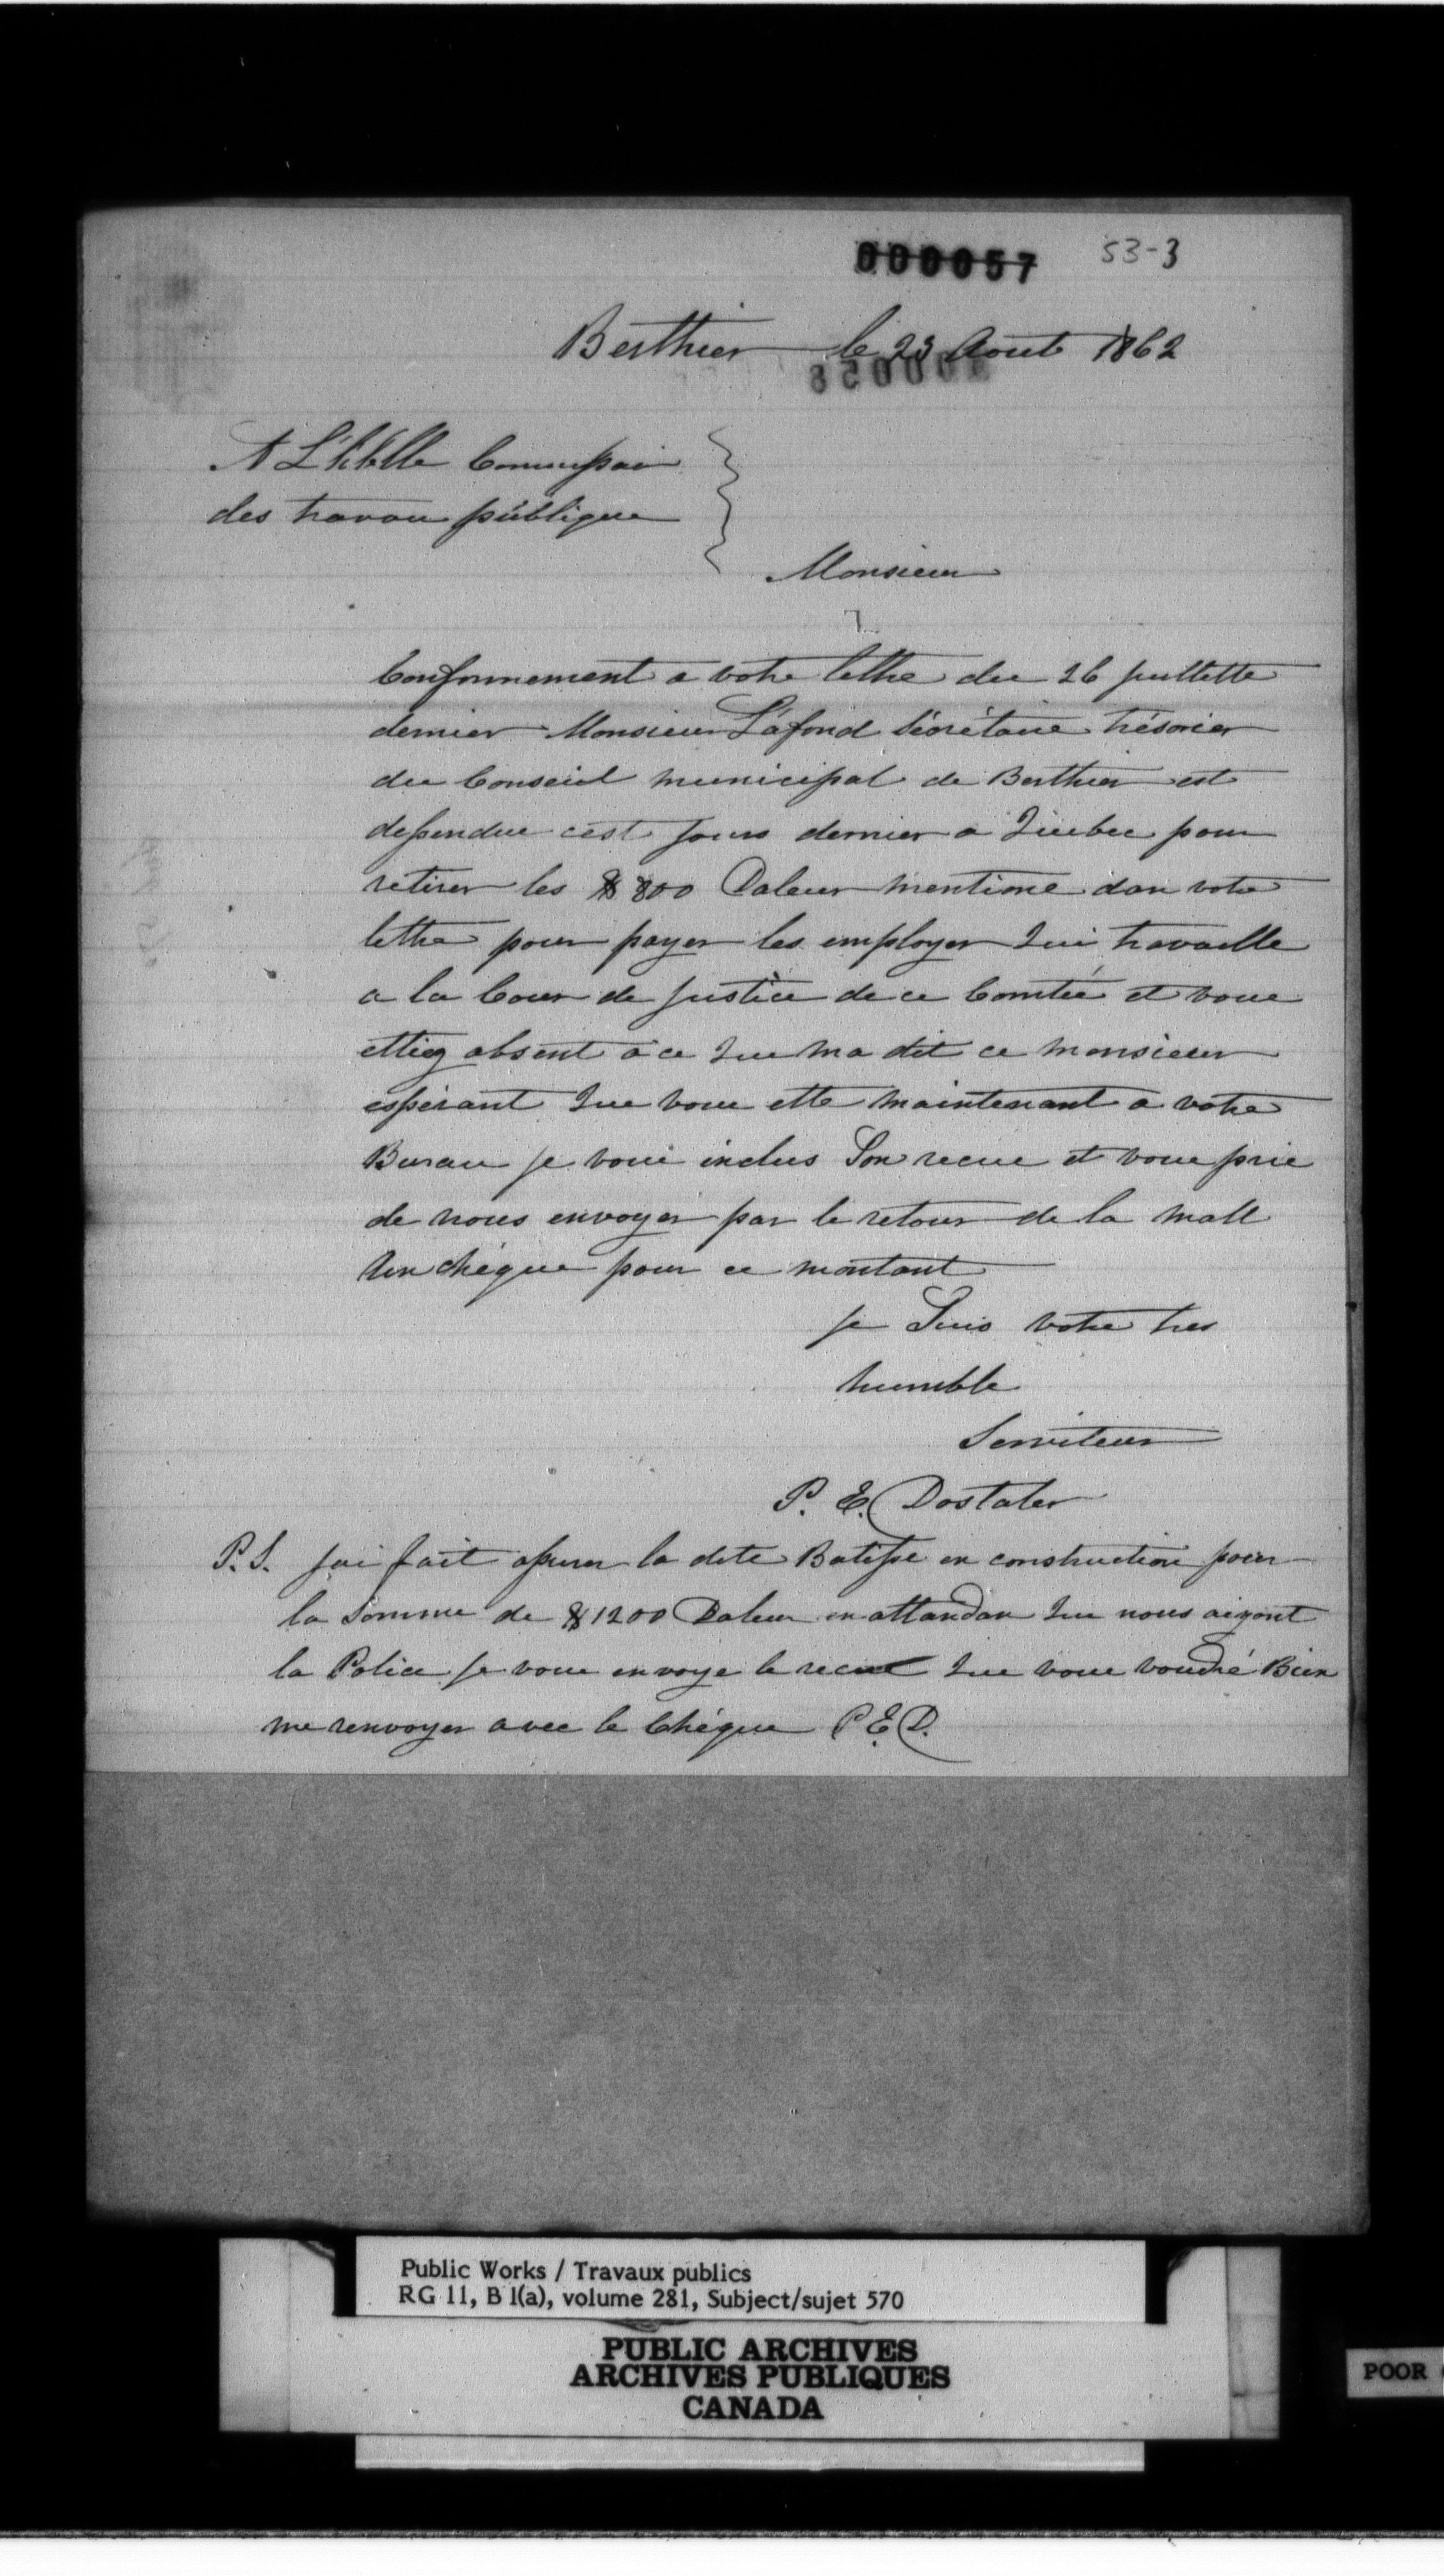 000057 53-3
Berthier le 23 Aout 1862
A L'hble Commissai
des travau publique
Monsieur
Conformement a votre lettre du 26 Juillette
dernier Monsieur Lafond Sécrétaire trésorier
du Conseil municipal de Berthier est
desendue cest Jours dernier a Quebec pour
retirer les $800 Daleur mentione dan votre
lettre pour payer les employer Qui travaille
a la Cour de Justice de ce Comtée et voue
ettiez absent a ce Que ma dit ce monsieur
espérant Que voue ette maintenant a votre
Bureau je voue inclus Son recue et voue prie
de nous envoyer par le retour de la mall
un chèque pour ce montant
je Suis votre tres
humble
Serviteur
P. E. Dostaler
P.S. jai fait assurer la dite Batisse en construction pour
la Somme de $1200 Daleur en attandan Que nous aiyont
la Police je voue envoye le recue Que voue voudré Bien
me renvoyer avec le Chéque P.E.D.
Public Works / Travaux publics
RG 11, B 1(a), volume 281, Subject/sujet 570
PUBLIC ARCHIVES
ARCHIVES PUBLIQUES
CANADA
POOR